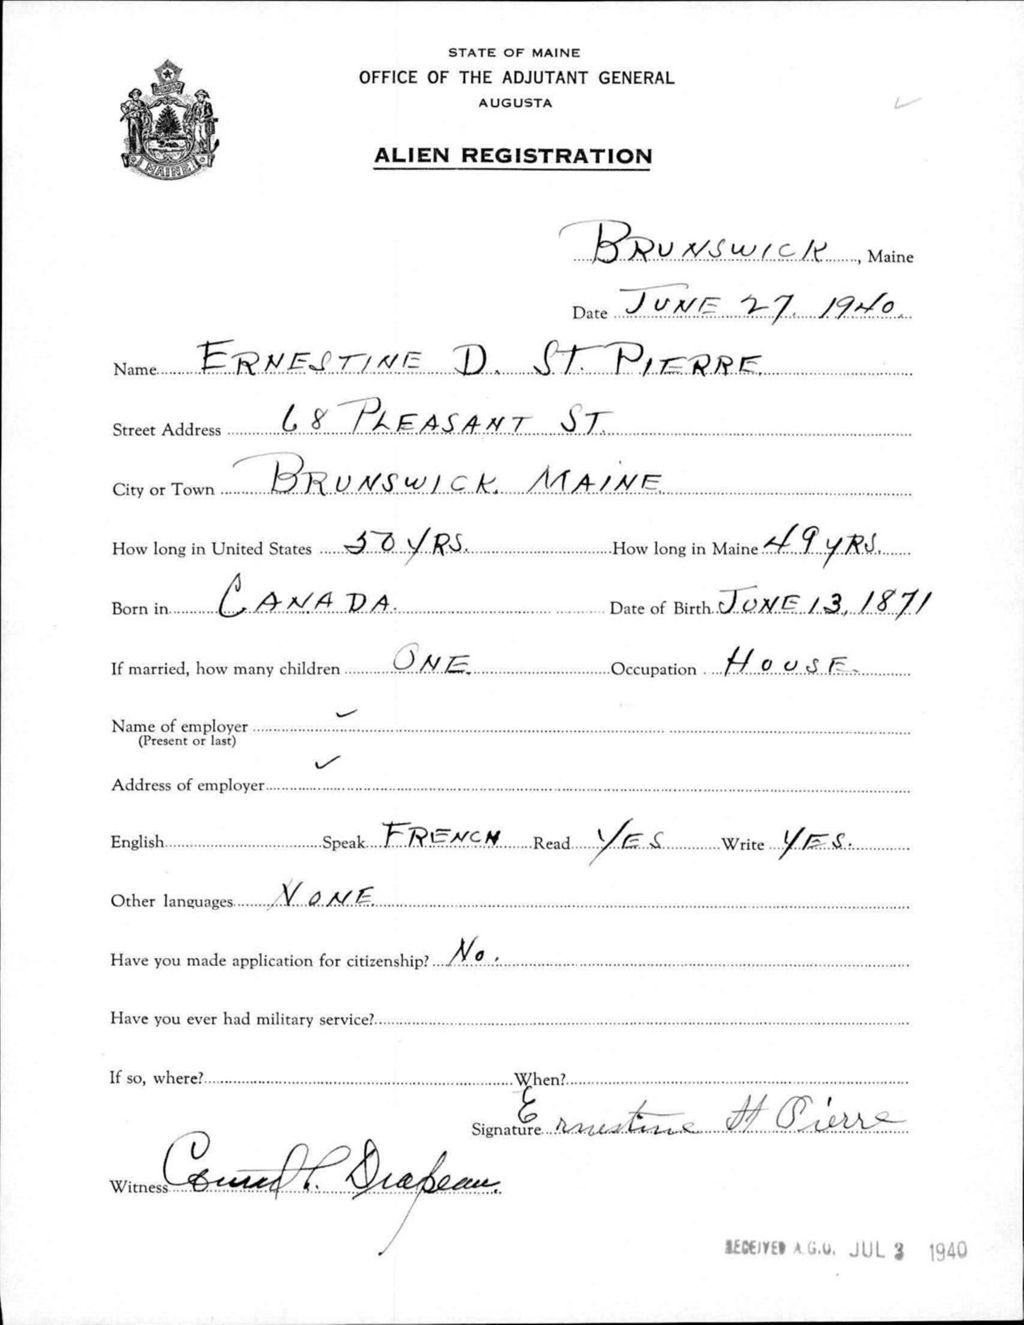 STATE OF MAINE
OFFICE OF THE ADJUTANT GENERAL
AUGUSTA
ALIEN REGISTRATION
MAINE
BRUNSWICK, Maine
Date JUNE 27, 1940.
Name ERNESTINE D. ST. PIERRE.
Street Address 68 PLEASANT ST.
City or Town BRUNSWICK, MAINE.
How long in United States 50 YRS. How long in Maine 49 YRS.
Born in CANADA. Date of Birth JUNE 13, 1871
If married, how many children ONE. Occupation HOUSE.
Name of employer
(Present or last)
Address of employer
English Speak FRENCH Read YES Write YES.
Other languages NONE.
Have you made application for citizenship? No.
Have you ever had military service?
If so, where? When?
Signature Ernestine St Pierre
Witness Conrad P. Drapeau.
RECEIVED A.G.O. JUL 3 1940